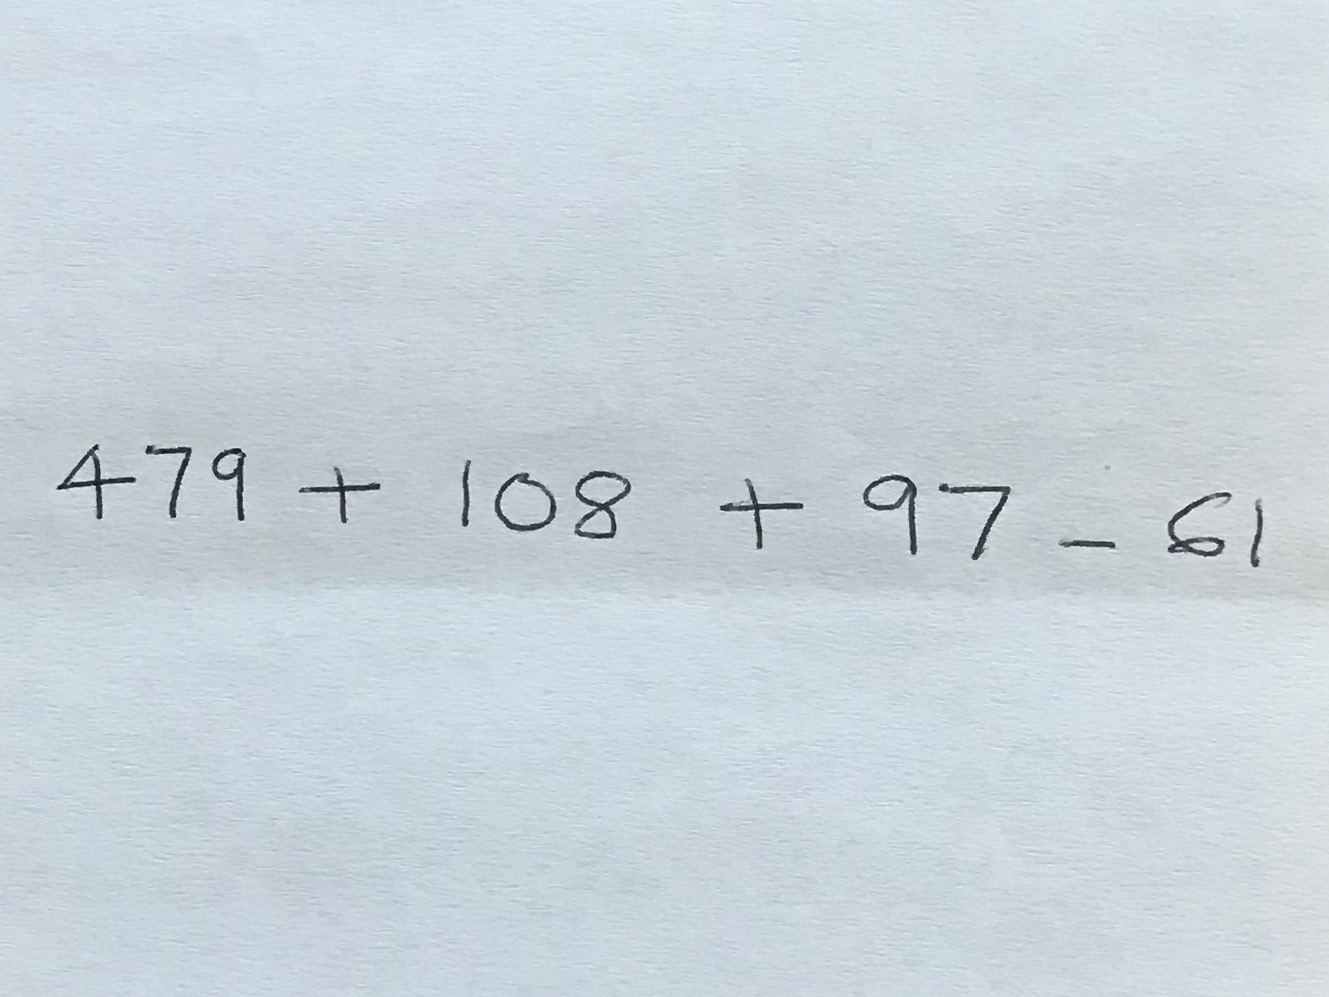 479 + 108 + 97 - 61